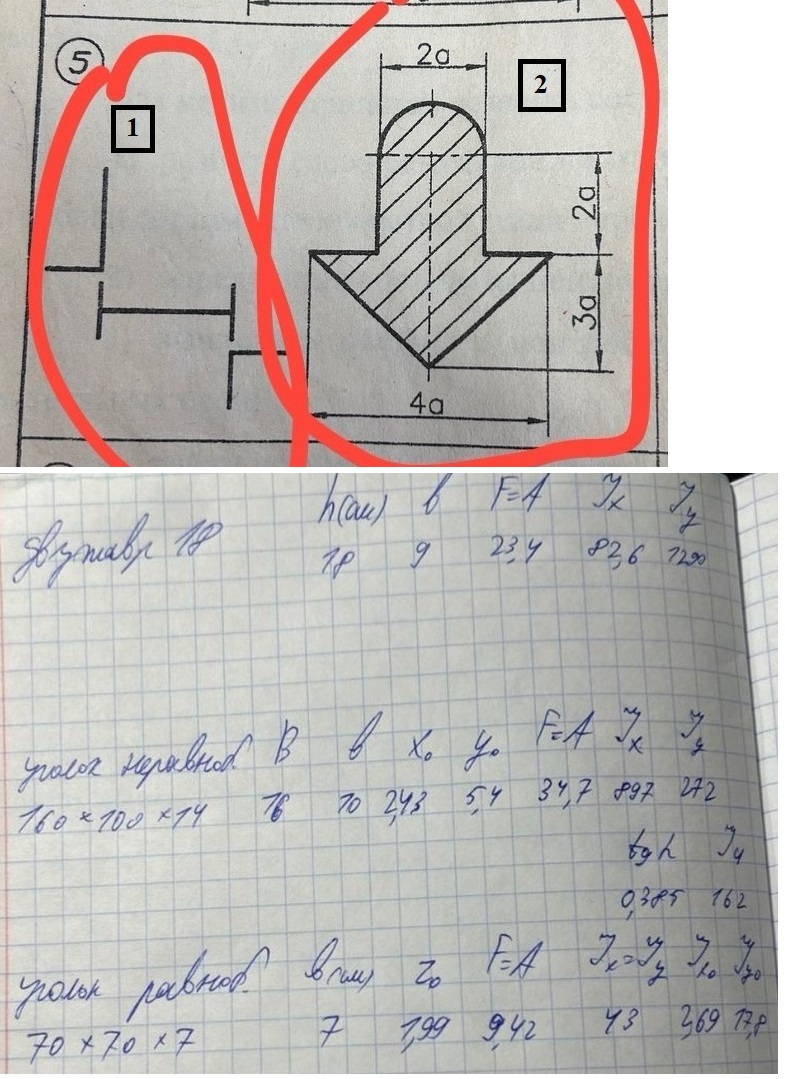 5
1
2
2a
2a
3a
4a
h(см) в F=A Jx Jy
двутавр 18 18 9 23,4 82,6 1290
уголок неравноб. B в x₀ y₀ F=A Jx Jy
160 × 100 × 14 16 10 2,43 5,4 34,7 897 272
Ju
0,385 162
уголок равноб. в(см) z₀ F=A Jx=Jy Jx₀ Jy₀
70 × 70 × 7 7 1,99 9,42 43